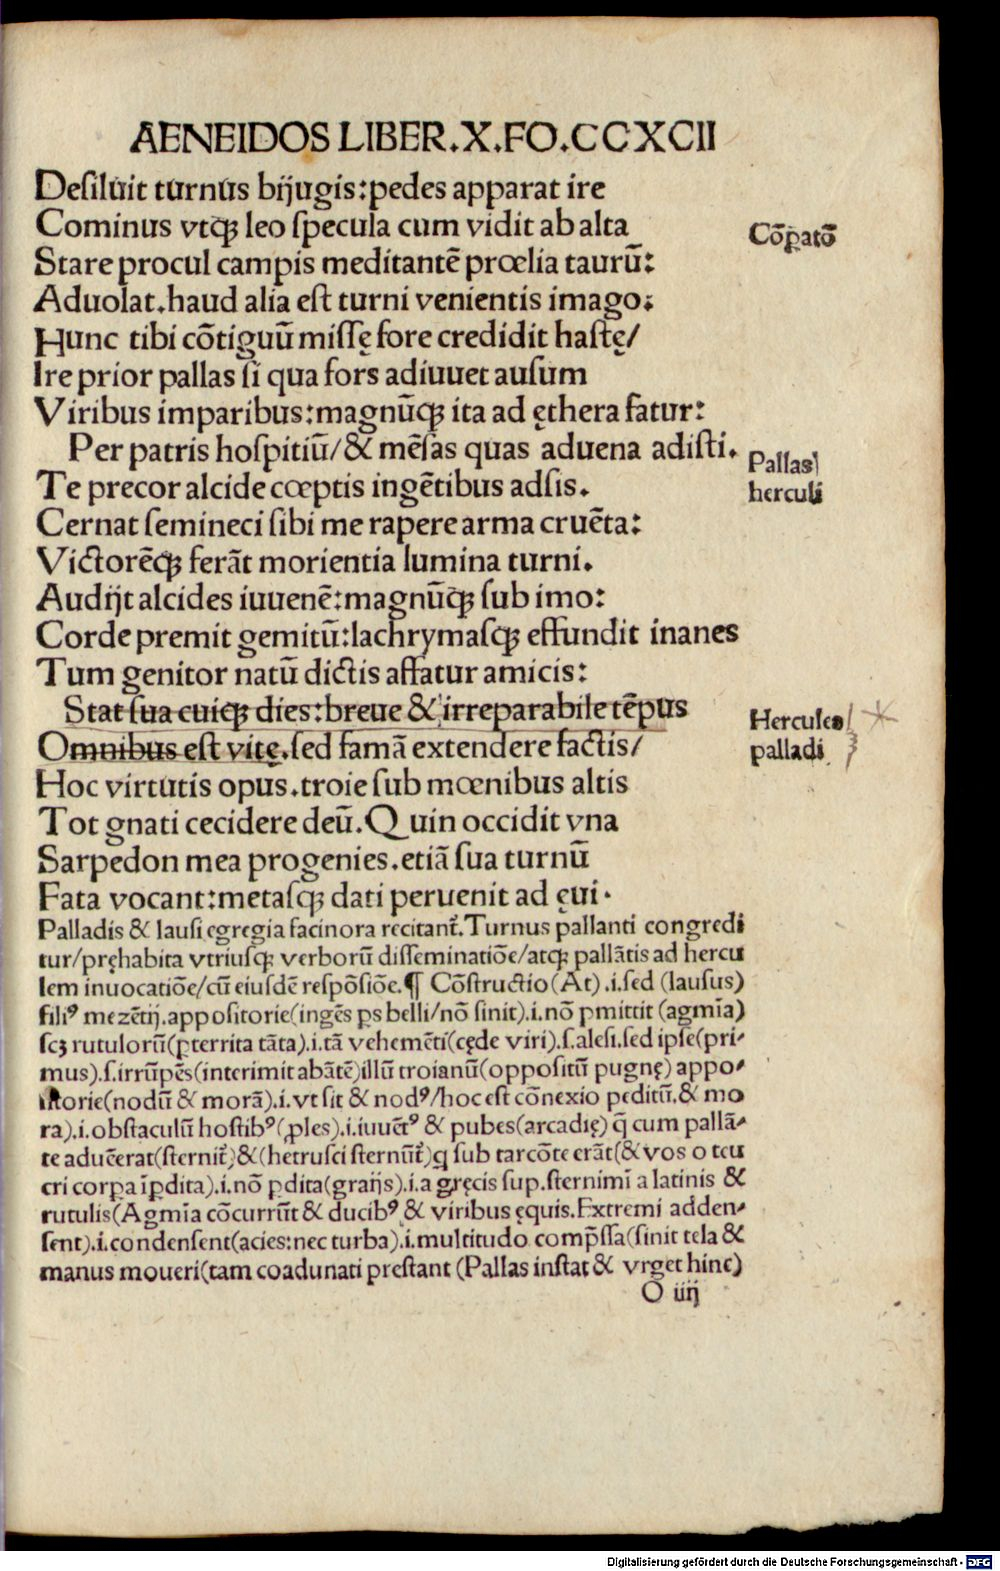 AENEIDOS LIBER.X.FO.CCXCII
Desiluit turnus bijugis:pedes apparat ire
Cominus vtqꝫ leo specula cum vidit ab alta
Cōꝑatō
Stare procul campis meditantē prœlia taurū:
Aduolat.haud alia est turni venientis imago:
Hunc tibi cōtiguū missę fore credidit hastę/
Ire prior pallas si qua fors adiuuet ausum
Viribus imparibus:magnūqꝫ ita ad ęthera fatur:
Per patris hospitiū/& mēsas quas aduena adisti.
Pallas
Te precor alcide cœptis ingētibus adsis.
herculi
Cernat semineci sibi me rapere arma cruēta:
Victorēqꝫ ferāt morientia lumina turni.
Audijt alcides iuuenē:magnūqꝫ sub imo:
Corde premit gemitū:lachrymasqꝫ effundit inanes
Tum genitor natū dictis affatur amicis:
Stat sua cuiqꝫ dies:breue & irreparabile tēpus
Hercules
Omnibus est vitę.sed famā extendere factis/
palladi
Hoc virtutis opus.troie sub mœnibus altis
Tot gnati cecidere deū.Quin occidit vna
Sarpedon mea progenies.etiā sua turnū
Fata vocant:metasqꝫ dati peruenit ad ęui.
Palladis & lausi egregia facinora recitant̃.Turnus pallanti congredi
tur/pręhabita vtriusqꝫ verborū disseminatiōe/atqꝫ pallātis ad hercu
lem inuocatiōe/cū eiusdē respōsiōe.¶ Cōstructio(At).i.sed (lausus)
filiꝰ mezētij.appositorie(ingēs ꝑs belli/nō sinit).i.nō ꝑmittit (agmīa)
scꝫ rutulorū(ꝑterrita tāta).i.tā vehemēti(cęde viri).s.alesi.sed ipse(pri-
mus).s.irrūpēs(interimit abātē)illū troianū(oppositū pugnę) appo-
sitorie(nodū & morā).i.vt sit & nodꝰ/hoc est cōnexio peditū.& mo
ra).i.obstaculū hostibꝰ(ꝓles).i.iuuēt̃ꝰ & pubes(arcadię) q̄ cum pallā-
te aduēerat(sternit̃)&(hetrusci sternūt̃)q sub tarcōte erāt(& vos o teu
cri corꝑa īꝑdita).i.nō ꝑdita(graijs).i.a gręcis sup.sternimī a latinis &
rutulis(Agmīa cōcurrūt & ducibꝰ & viribus ęquis.Extremi adden-
sent).i.condensent(acies:nec turba).i.multitudo comp̄ssa(sinit tela &
manus moueri(tam coadunati prestant (Pallas instat & vrget hinc)
O iiij
Digitalisierung gefördert durch die Deutsche Forschungsgemeinschaft - DFG